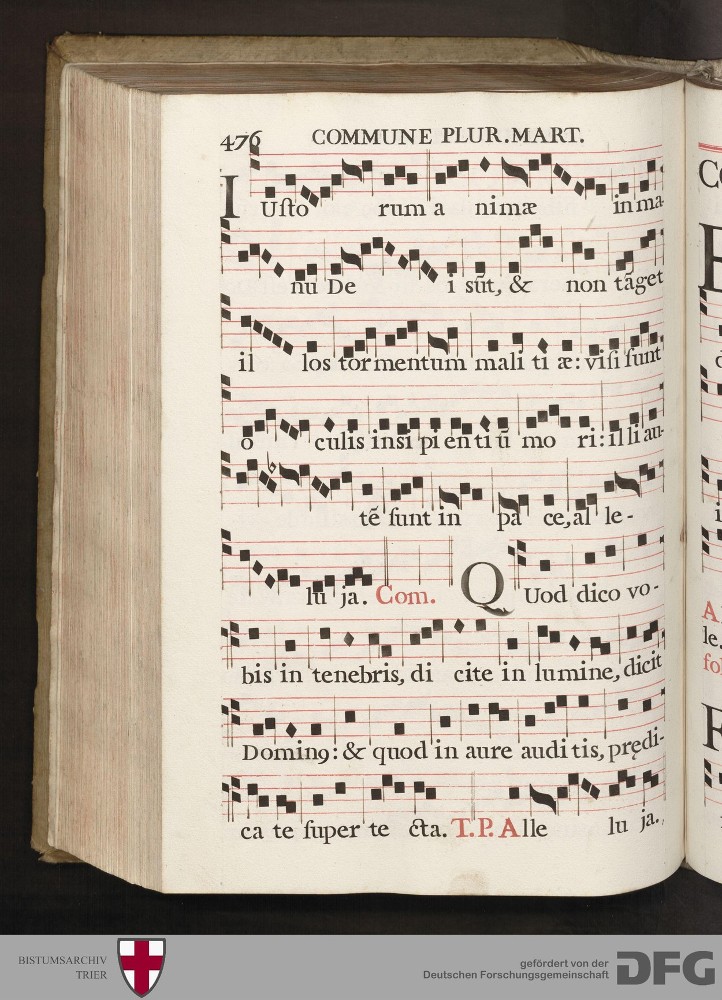 476 COMMUNE PLUR.MART.
IUſto rum a nimæ in ma-
nu De i sũt, & non tãget
il los tormentum maliti æ: viſi ſunt
o culis insipientiũ mo ri: illi au-
tẽ ſunt in pa ce, al le-
lu ja. Com. QUod dico vo-
bis in tenebris, di cite in lumine, dicit
Dominꝯ: & quod in aure auditis, prędi-
ca te ſuper te cta. T.P. Alle lu ja.
BISTUMSARCHIV
TRIER
gefördert von der
Deutschen Forschungsgemeinschaft
DFG